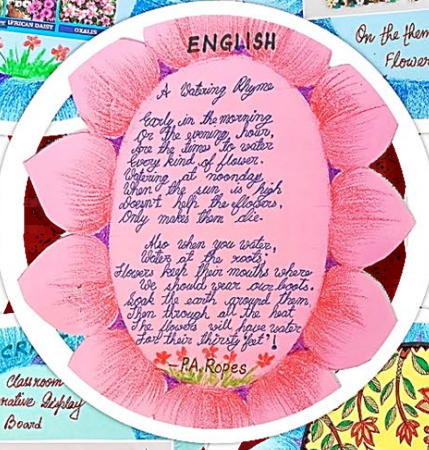 AFRICAN DAISY
OXALIS
On the them
Flower
ENGLISH
A Watering Rhyme
Early in the morning
Or the evening hour,
Are the times to water
Every kind of flower.
Watering at noonday
When the sun is high
Doesn't help the flowers,
Only makes them die.
Also when you water,
Water at the roots;
Flowers keep their mouths where
We should wear our boots.
Soak the earth around them,
Then through all the heat
The flowers will have water
For their thirsty feet"!
– P.A. Ropes
CR
Classroom
rative Display
Board